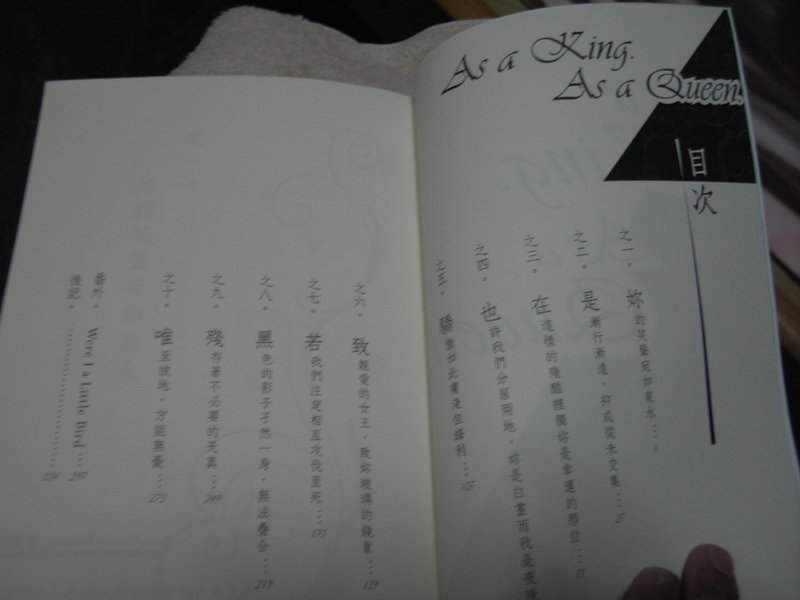 As a King.
As a Queen.
目次
之一。妳的笑聲宛如泉水…1
之二。是漸行漸遠，抑或從未交集…27
之三。在這樣的殘酷裡獨妳是幸運的那位…
之四。也許我們分居兩地，妳是白晝而我是夜晚
之五。驕傲如此膚淺但鋒利…105
之六。致親愛的女王，致妳玻璃的鏡象…139
之七。若我們注定相互攻伐至死…175
之八。黑色的影子孑然一身，無法疊合…219
之九。殘存著不必要的天真…249
之十。唯至彼地，方能無憂…273
番外。Were I a Little Bird……297
後記。